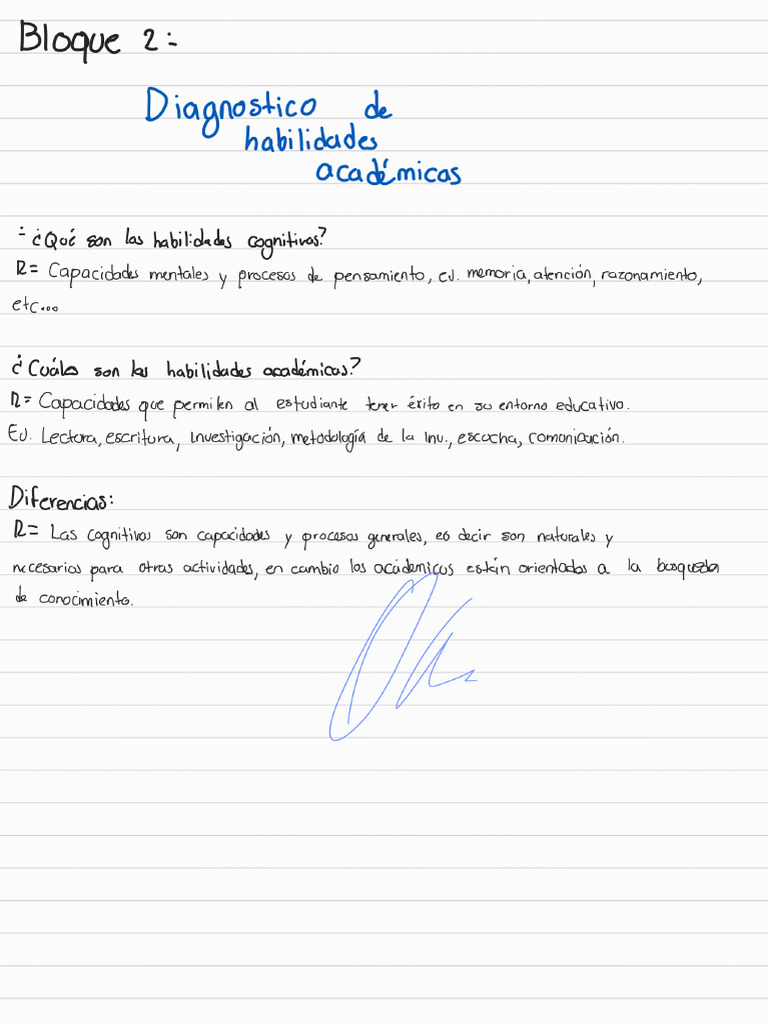 Bloque 2:
Diagnostico de
habilidades
académicas
- ¿Qué son las habilidades cognitivas?
R= Capacidades mentales y procesos de pensamiento, ej. memoria, atención, razonamiento,
etc...
¿Cuáles son las habilidades académicas?
R= Capacidades que permiten al estudiante tener éxito en su entorno educativo.
EJ. Lectora, escritura, investigación, metodología de la inv., escucha, comunicación.
Diferencias:
R= Las cognitivas son capacidades y procesos generales, es decir son naturales y
necesarias para otras actividades, en cambio las acádemicas están orientadas a la busqueda
de conocimiento.